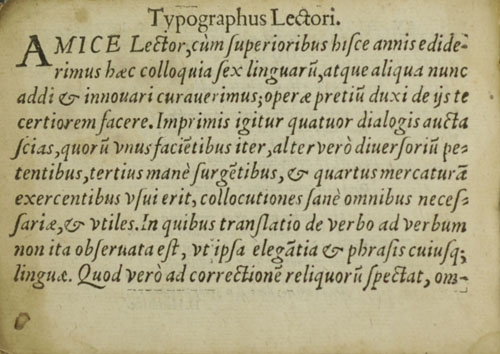 Typographus Lectori.
AMICE Lector, cùm superioribus hisce annis edide-
rimus hæc colloquia sex linguarũ, atque aliqua nunc
addi & innouari curauerimus; operæ pretiũ duxi de ijs te
certiorem facere. Imprimis igitur quatuor dialogis aucta
scias, quorũ vnus faciẽtibus iter, alter verò diuersoriũ pe-
tentibus, tertius manè surgẽtibus, & quartus mercaturã
exercentibus vsui erit, collocutiones sanè omnibus neces-
sariæ, & vtiles. In quibus translatio de verbo ad verbum
non ita obseruata est, vt ipsa elegãtia & phrasis cuiusq;
linguæ. Quod verò ad correctionẽ reliquorũ spectat, om-